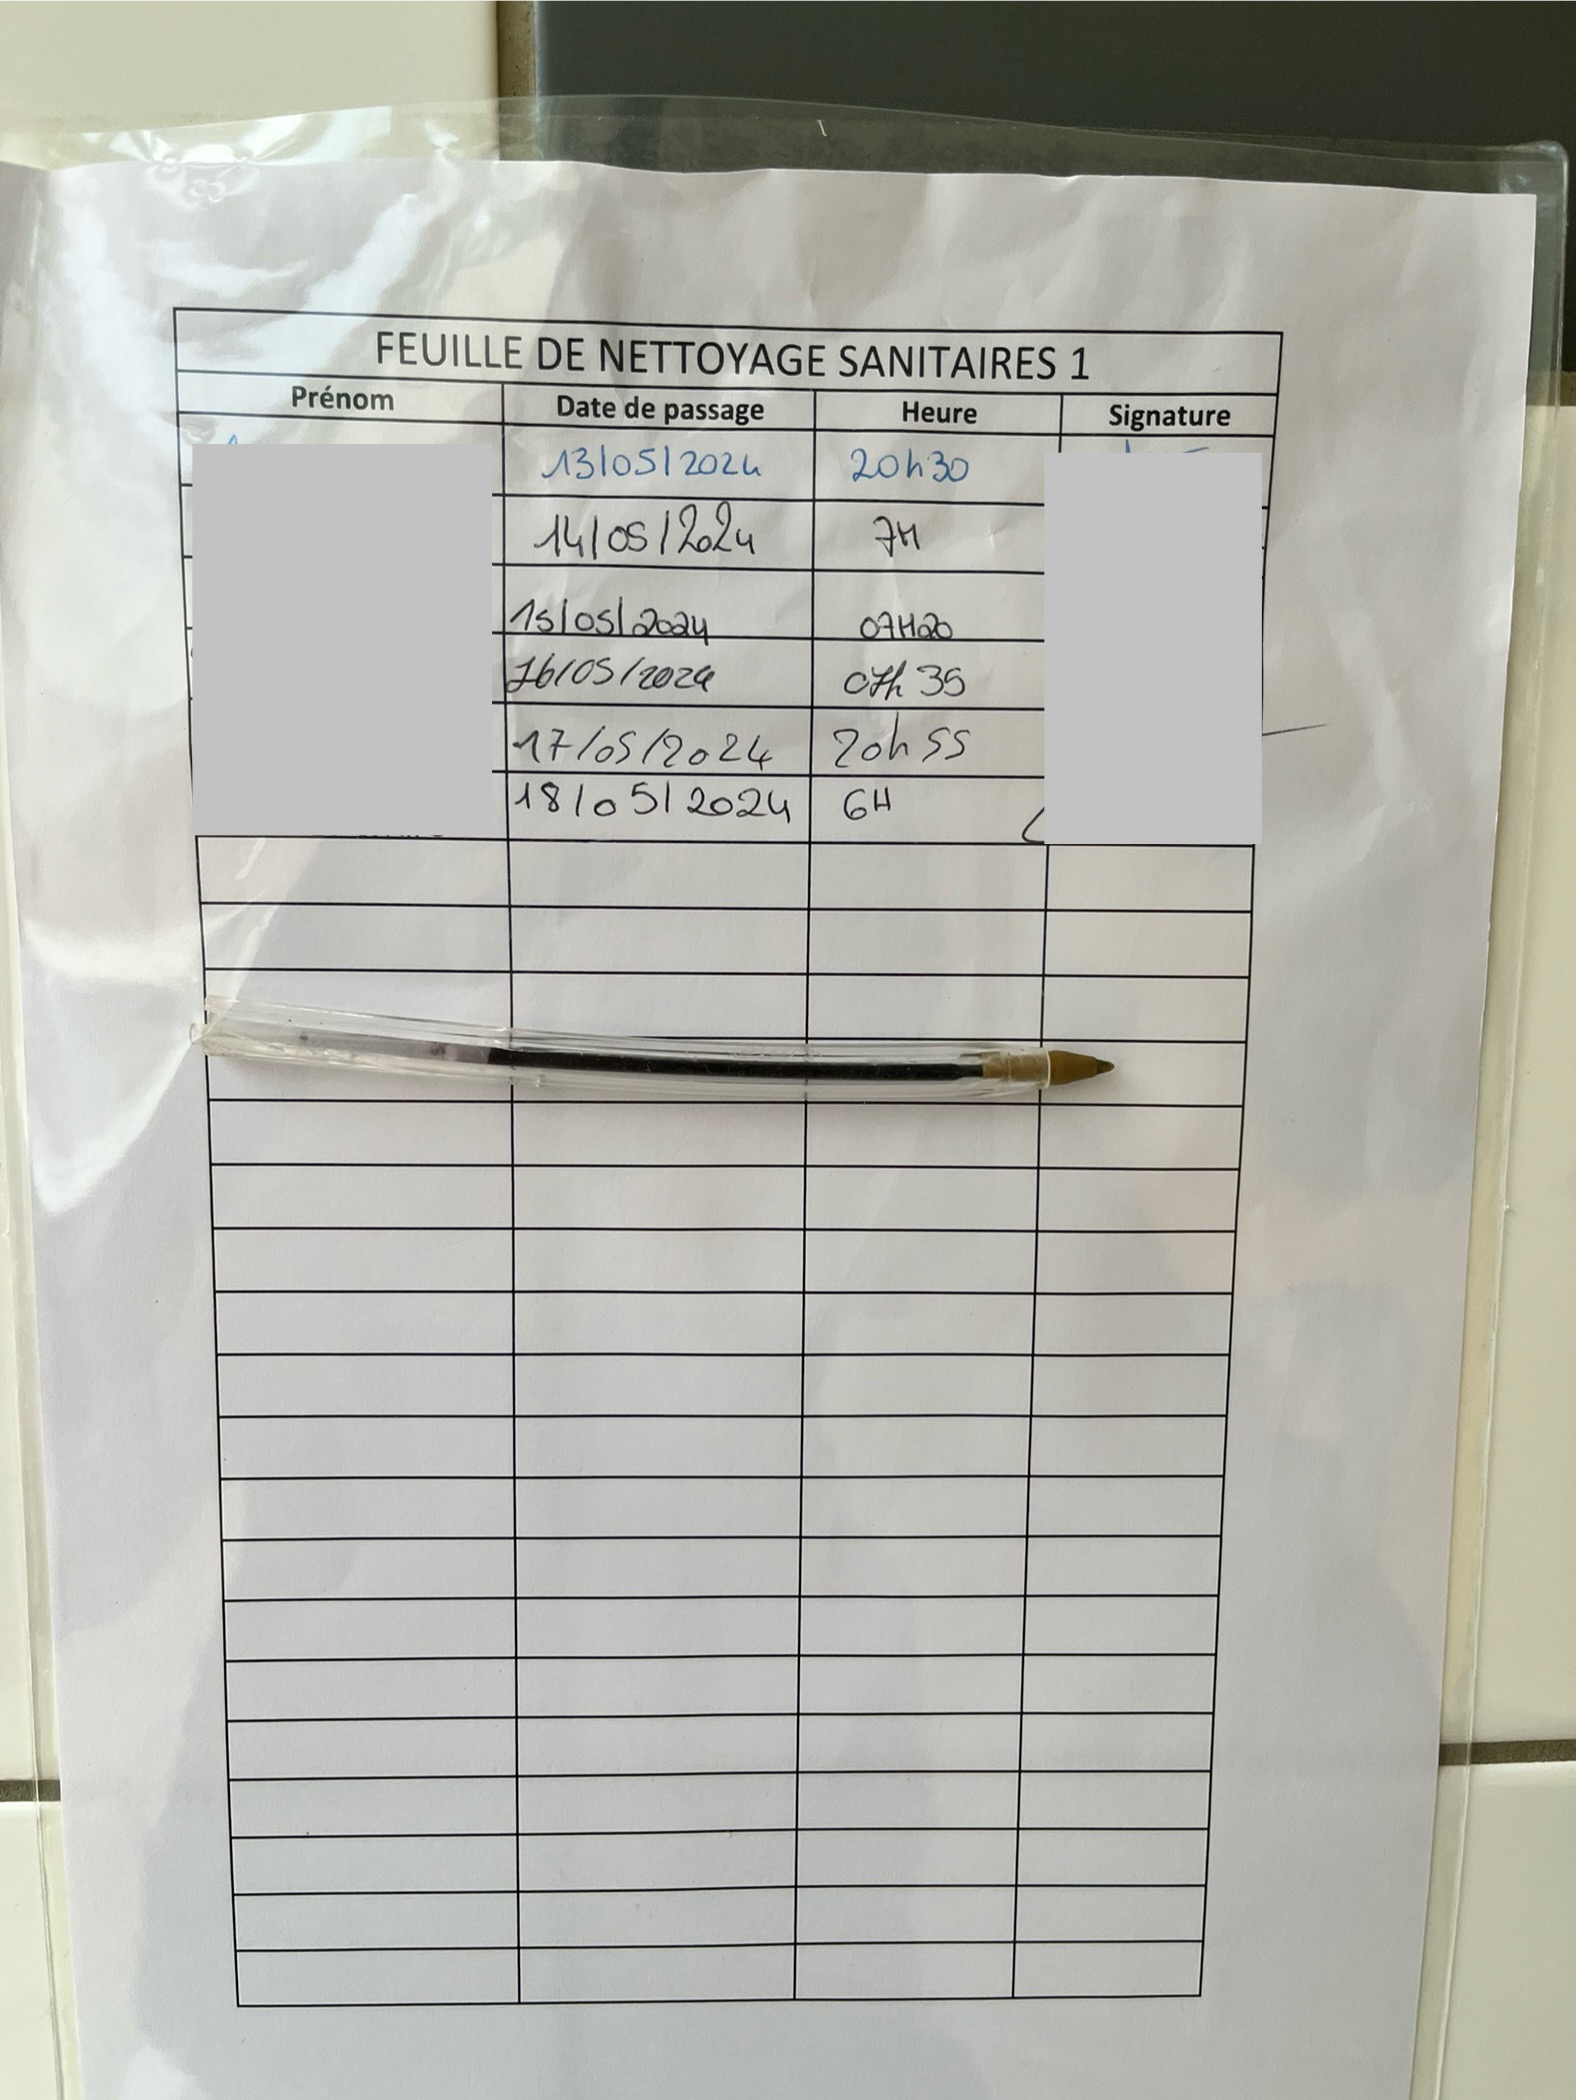 FEUILLE DE NETTOYAGE SANITAIRES 1
Prénom Date de passage Heure Signature
13/05/2024 20h30
14/05/2024 7H
15/05/2024 07H20
16/05/2024 07h35
17/05/2024 20h55
18/05/2024 6H